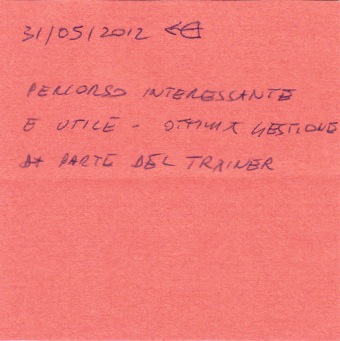 31/05/2012
PERCORSO INTERESSANTE
E UTILE - OTTIMA GESTIONE
DA PARTE DEL TRAINER